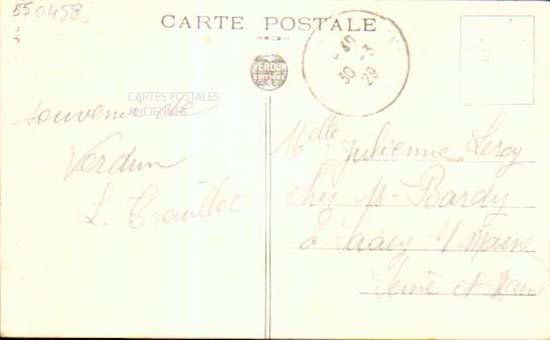 550498
CARTE POSTALE
VERDUN
EDITIONS
CARTES POSTALES
ANCIENNES
30
29
Souvenir de
Verdun
L. Trouillot
Melle Julienne Leroy
chez Mr Bardy
à Saacy s/ Marne
Seine et Marne